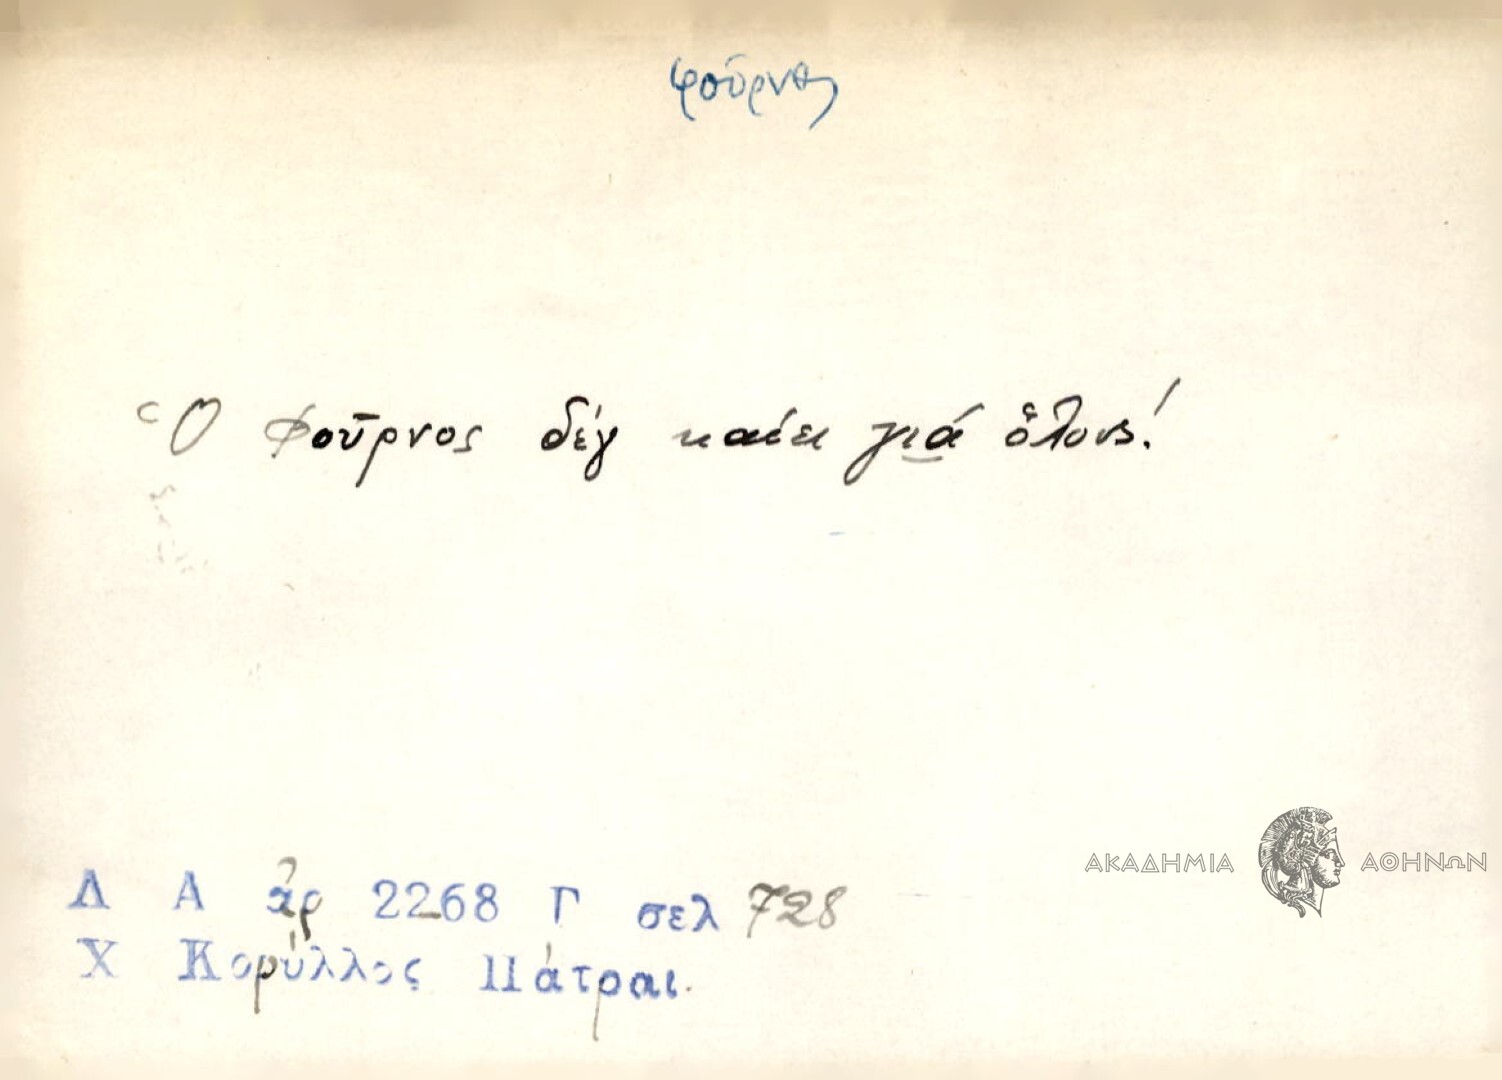 φούρνος
Ὁ Φοῦρνος δέγ καίει γιά ὅλους!
Δ Α ἀρ 2268 Γ σελ 728
Χ Κορύλλος Πάτραι.
ΑΚΑΔΗΜΙΑ ΑΘΗΝΩΝ